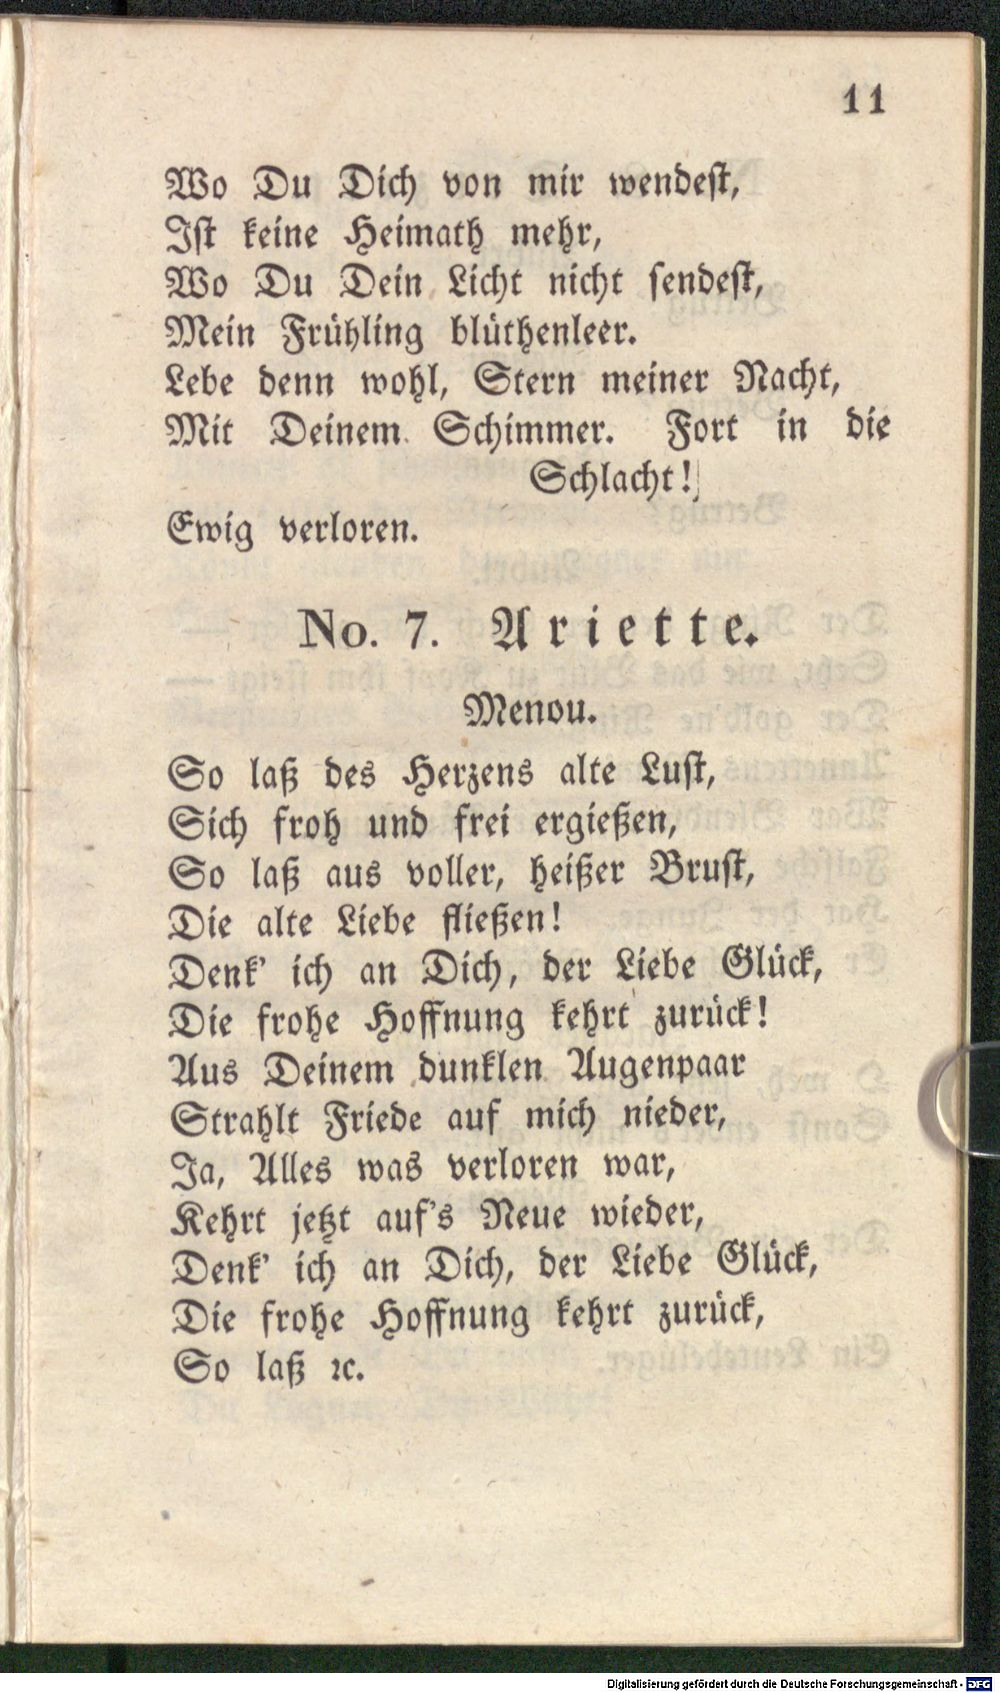 11
Wo Du Dich von mir wendest,
Ist keine Heimath mehr,
Wo Du Dein Licht nicht sendest,
Mein Frühling blüthenleer.
Lebe denn wohl, Stern meiner Nacht,
Mit Deinem Schimmer. Fort in die
Schlacht!
Ewig verloren.
No. 7. Ariette.
Menou.
So laß des Herzens alte Lust,
Sich froh und frei ergießen,
So laß aus voller, heißer Brust,
Die alte Liebe fließen!
Denk' ich an Dich, der Liebe Glück,
Die frohe Hoffnung kehrt zurück!
Aus Deinem dunklen Augenpaar
Strahlt Friede auf mich nieder,
Ja, Alles was verloren war,
Kehrt jetzt auf's Neue wieder,
Denk' ich an Dich, der Liebe Glück,
Die frohe Hoffnung kehrt zurück,
So laß ꝛc.
Digitalisierung gefördert durch die Deutsche Forschungsgemeinschaft - DFG